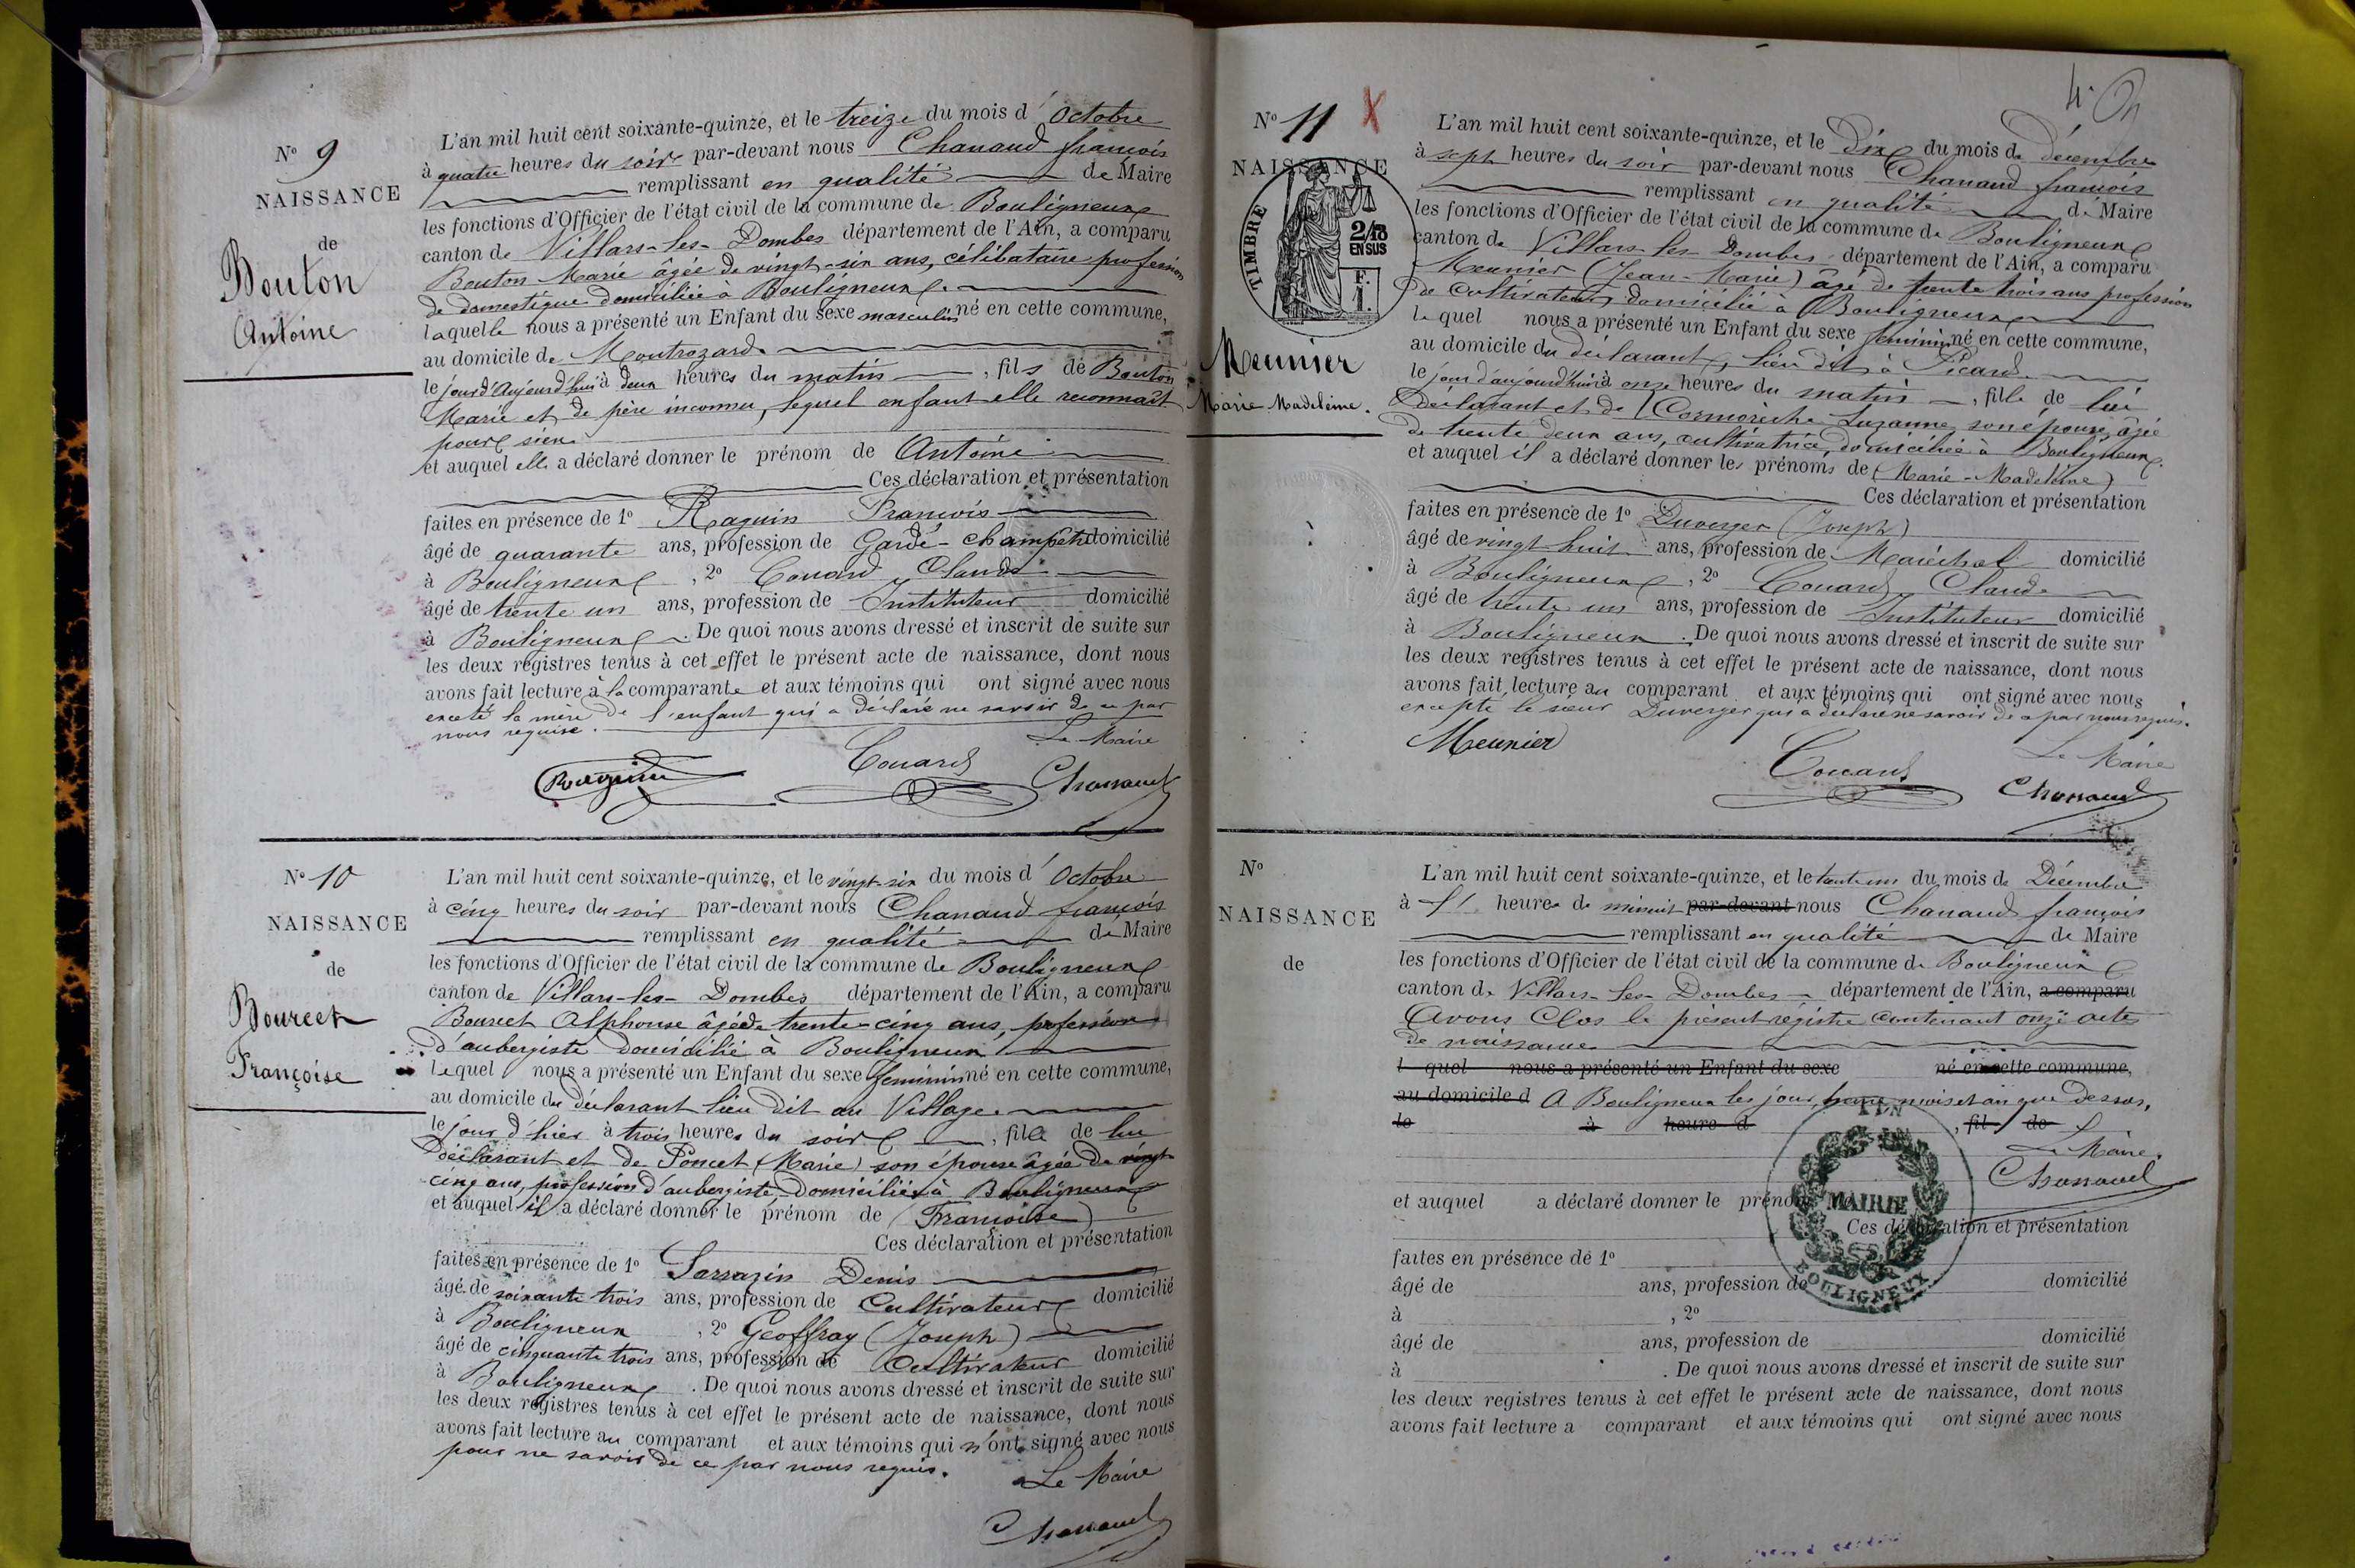 N° 9
NAISSANCE
de
Bouton
Antoine
L'an mil huit cent soixante-quinze, et le treize du mois d'Octobre
à quatre heures du soir par-devant nous Chanaud françois
remplissant en qualité de Maire
les fonctions d'Officier de l'état civil de la commune de Bouligneux
canton de Villars-les-Dombes département de l'Ain, a comparu
Bouton Marie âgée de vingt-six ans, célibataire profession
de domestique domiciliée à Bouligneux.
laquelle nous a présenté un Enfant du sexe masculin né en cette commune,
au domicile de Montrozard
le jour d'Aujourd'hui à deux heures du matin, fils de Bouton
Marie et de père inconnu, lequel enfant elle reconnaît
pour sien
et auquel elle a déclaré donner le prénom de Antoine
Ces déclaration et présentation
faites en présence de 1° Raguin François
âgé de quarante ans, profession de Garde-champêtre domicilié
à Bouligneux, 2° Couard Claude
âgé de trente un ans, profession de Instituteur domicilié
à Bouligneux. De quoi nous avons dressé et inscrit de suite sur
les deux registres tenus à cet effet le présent acte de naissance, dont nous
avons fait lecture à la comparante et aux témoins qui ont signé avec nous
excété la mère de l'enfant qui a déclaré ne savoir de ce par
nous requise.
Le Maire
Raguin Couard Chanaud
N° 10
NAISSANCE
de
Bourcet
Françoise
L'an mil huit cent soixante-quinze, et le vingt-six du mois d'Octobre
à cinq heures du soir par-devant nous Chanaud françois
remplissant en qualité de Maire
les fonctions d'Officier de l'état civil de la commune de Bouligneux
canton de Villars-les-Dombes département de l'Ain, a comparu
Bourcet Alphonse âgé de trente-cinq ans, profession
d'aubergiste domicilié à Bouligneux
lequel nous a présenté un Enfant du sexe féminin né en cette commune,
au domicile du déclarant lieu dit au Village.
le jour d'hier à trois heures du soir, fille de lui
déclarant et de Poncet (Marie) son épouse âgée de vingt
cinq ans, profession d'aubergiste, domiciliée à Bouligneux
et auquel il a déclaré donner le prénom de (Françoise)
Ces déclaration et présentation
faites en présence de 1° Sarrazin Denis
âgé de soixante trois ans, profession de Cultivateur domicilié
à Bouligneux, 2° Geoffray (Joseph)
âgé de cinquante trois ans, profession de Cultivateur domicilié
à Bouligneux. De quoi nous avons dressé et inscrit de suite sur
les deux registres tenus à cet effet le présent acte de naissance, dont nous
avons fait lecture au comparant et aux témoins qui n'ont signé avec nous
pour ne savoir de ce par nous requis.
Le Maire
Chanaud
4.
N° 11 X
NAISSANCE
TIMBRE
2/10
EN SUS
F.
1.
Meunier
Marie Madeleine.
L'an mil huit cent soixante-quinze, et le Dix du mois de décembre
à sept heures du soir par-devant nous Chanaud françois
remplissant en qualité de Maire
les fonctions d'Officier de l'état civil de la commune de Bouligneux
canton de Villars-les-Dombes département de l'Ain, a comparu
Meunier (Jean-Marie) âgé de trente trois ans profession
de Cultivateur, domicilié à Bouligneux
lequel nous a présenté un Enfant du sexe féminin né en cette commune,
au domicile du déclarant, lieu dit à Picard.
le jour d'aujourd'hui à onze heures du matin, fille de lui
déclarant et de Cormorèche Suzanne, son épouse, âgée
de trente deux ans, cultivatrice, domiciliée à Bouligneux.
et auquel il a déclaré donner les prénoms de (Marie-Madeleine)
Ces déclaration et présentation
faites en présence de 1° Duverger (Joseph)
âgé de vingt huit ans, profession de Maréchal domicilié
à Bouligneux, 2° Couard Claude
âgé de trente un ans, profession de Instituteur domicilié
à Bouligneux. De quoi nous avons dressé et inscrit de suite sur
les deux registres tenus à cet effet le présent acte de naissance, dont nous
avons fait lecture au comparant et aux témoins qui ont signé avec nous
excepté le sieur Duverger qui a déclaré ne savoir de ce par nous requis.
Le Maire
Meunier Couard Chanaud
N°
NAISSANCE
de
L'an mil huit cent soixante-quinze, et le trente un du mois de Décembre
à heure de minuit par-devant nous Chanaud françois
remplissant en qualité de Maire
les fonctions d'Officier de l'état civil de la commune de Bouligneux
canton de Villars-les-Dombes département de l'Ain, a comparu
Avons Clos le présent registre contenant onze actes
de naissances
l quel nous a présenté un Enfant du sexe né en cette commune,
au domicile d A Bouligneux les jour, heure, mois et an que dessus.
le à heure d, fil de
Le Maire.
Chanaud
et auquel a déclaré donner le prénom
Ces déclaration et présentation
faites en présence de 1°
âgé de ans, profession de domicilié
à , 2°
âgé de ans, profession de domicilié
à . De quoi nous avons dressé et inscrit de suite sur
les deux registres tenus à cet effet le présent acte de naissance, dont nous
avons fait lecture a comparant et aux témoins qui ont signé avec nous
AIN
MAIRIE
BOULIGNEUX